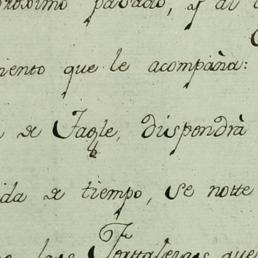 próximo pasado, y al
miento que le acompaña:
de Fagle, dispondrà
ida de tiempo, se note
las Fortalezas que